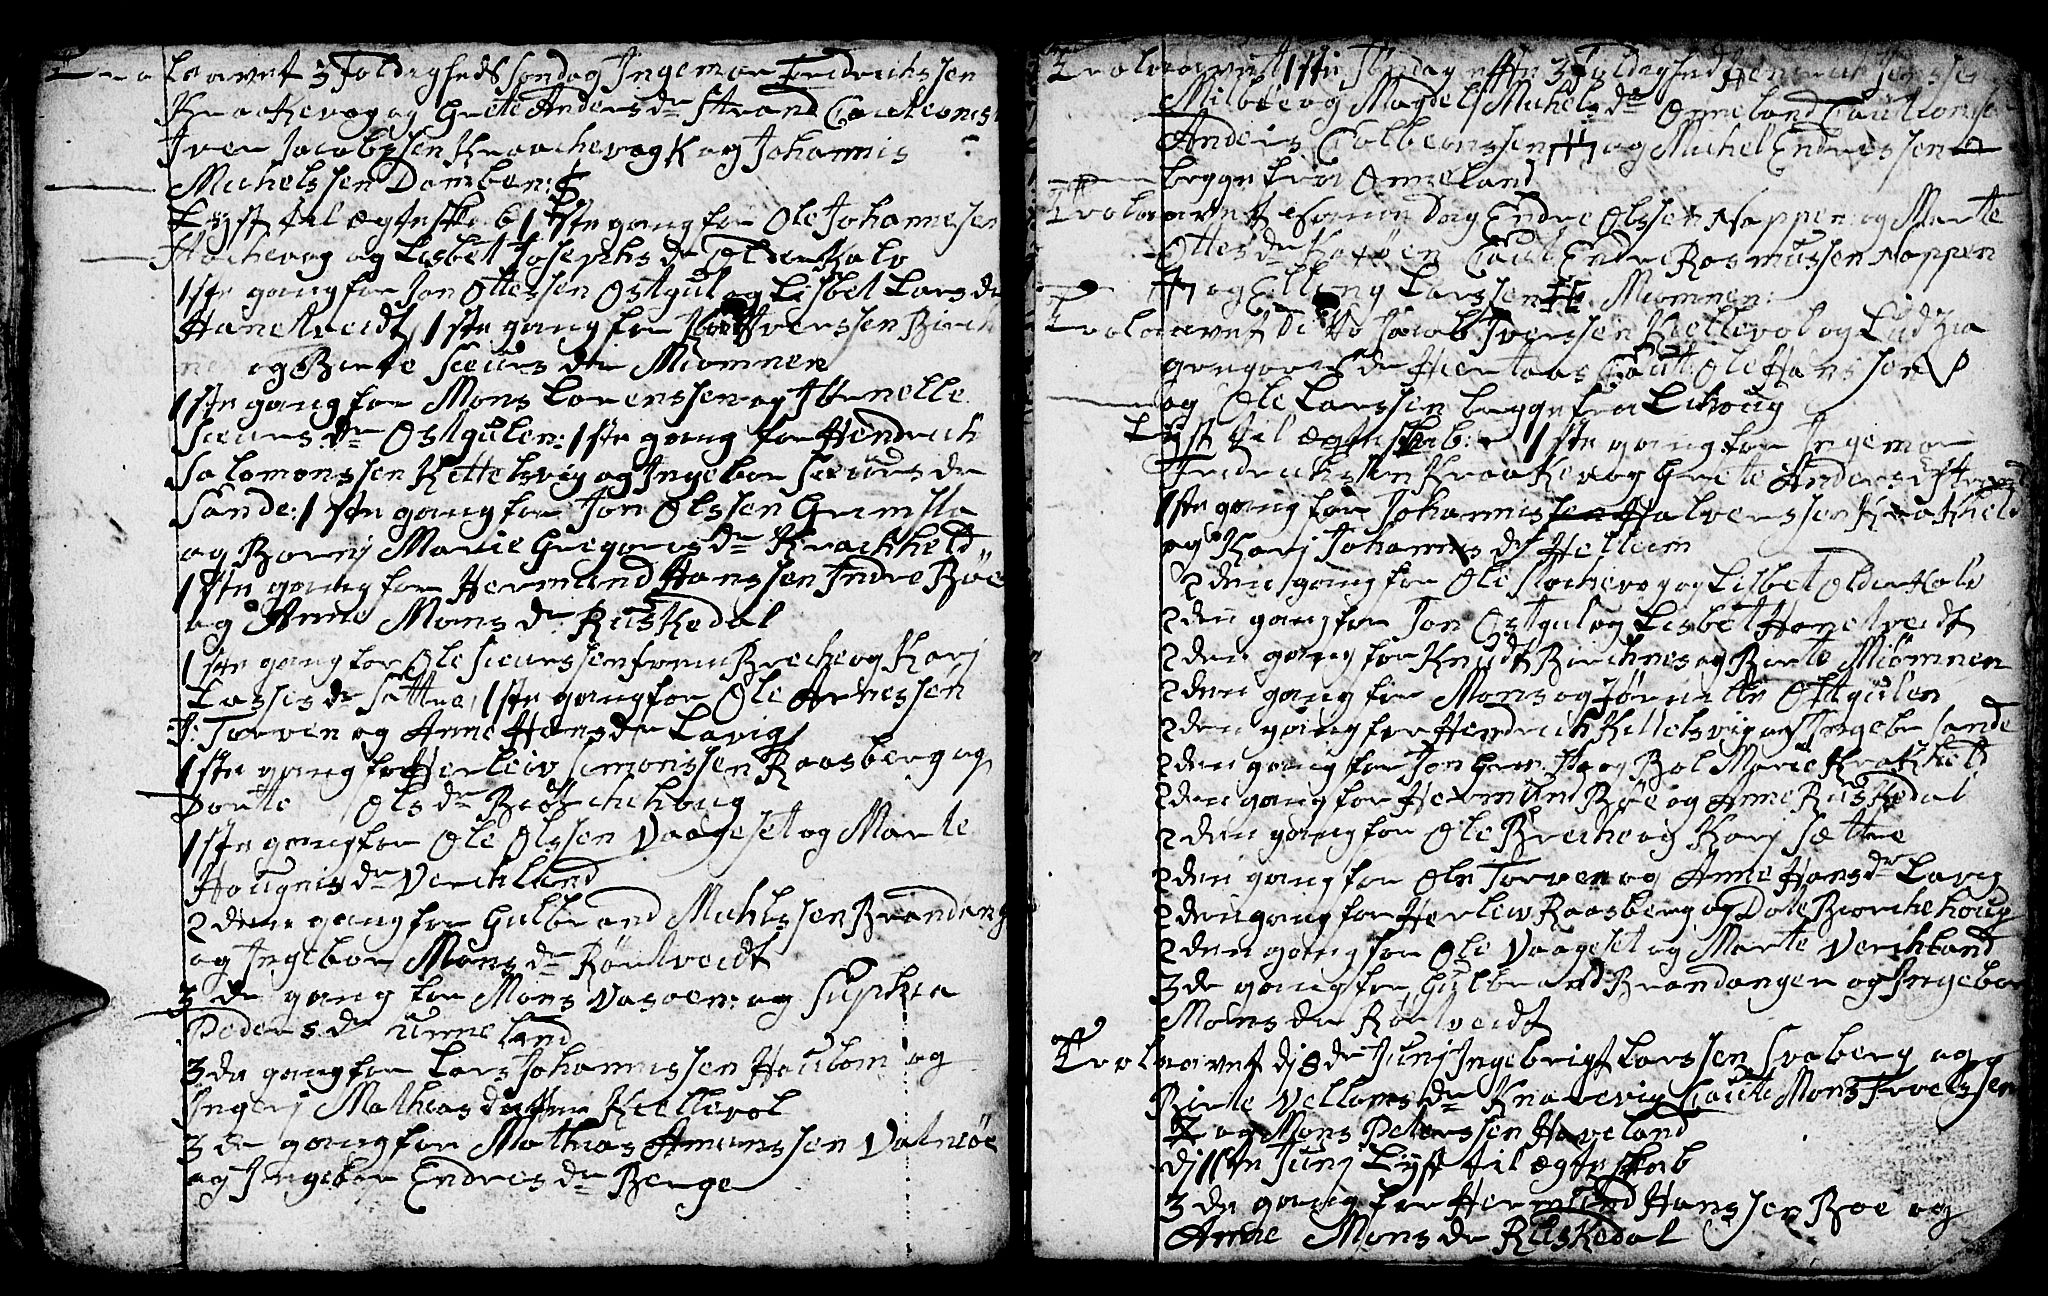 Trolaavet 3 Foldigheds Søndag Ingemar Fredrichssen
Kraakevog og Grete Anders dr Strand Cauteonist
Iver Jacobssen Kraachevog K og Johannis
Michelssen Domben:
Lyst til ægteskab 1ste gang for Ole Johannesen
Stochevog og Lisbet Josephs dr OlderKalv
1ste gang for Jon Ottessen Ostgul og Lisbet Lars dr
Hanekveidt, 1ste gang for Iverssen Birch
nes og Birte Siurs dr Miømnen
1ste gang for Mons Lorenssen og Pernelle
Siurs dr Ostgulen: 1ste gang for Hendrich
Salomonssen Kettelsvig og Ingebor Siurs dr
Sande: 1ste gang for Jon Olssen Grimsta
og Borni Marie Gregoris dr Krackheld
1ste gang for Hermund Hanssen Indre Böe
og Anne Mons dr Ruskedal
1ste gang for Ole Siurssen Breche og Karj
Lasses dr Sættre, 1ste gang for Ole Arnessen
J: Torven og Anne Hans dr Lavig
1ste gang for Herleiv Simonssen Raasberg og
Dorte Ols dr Biörchehoug
1ste gang for Ole Olssen Vaageset og Marte
Hougnis dr Verchland
2den gang for Gulbrand Michlssen Brandang
og Ingebor Mons dr Rörtveidt
3de gang for Mons Vasöen: og Suphia
Peders dr Unneland
3de gang for Lars Johannissen Houbom og
Ingerj Mathias datter Kiellevol
3de gang for Mathias Amunssen Valneöe
og Ingebor Endres dr Berge
Trolaavet 1ste Søndag effter 3Foldighed Henrich Jenssen
Milber og Magdel Michels dr Onneland Cautionist
Anders Colbeonssen og Michel Endressen
begge fra Onneland
Trolaavet samme Dag Endre Olssen Noppen: og Marte
Ottes dr Caut Endre Rasmussen Noppen
og Elling Larssen Miømnen:
Trolaavet Ditto Jacob Iverssen Kiellevol og Lüdzia
gregoris dr Hiertaas Caut: Ole Hanssen
og Ole Larssen begge fra Lihoug
Lyst til ægteskab: 1ste gang for Ingemar
Fredrichssen Kraakevog Grete Anders dr Strand
1ste gang for Johannis Halverssen Krakheld
og Karj Johannis dr Hellem
2den gang for Ole Stochevog og Lisbet OlderKalv
2den gang for Jon Ostgul og Lisbet Hanekveidt
2den gang for Knudt Birchnes og Birte Miömnen
2den gang for Mons og Pernille Ostgulen
2den gang for Hendrich Kittelsvig og Ingebor Sande
2den gang for Jon Grimsta og Bol Marie Krakheld
2den gang for Hermund Böe og Anne Ruskedal
2den gang for Ole Breche og Karj Sættre
2den gang for Ole Torven og Anne Hans dr Lavig
2den gang for Herleiv Raasberg og Dote Biorchehoug
2den gang for Ole Vaageset og Marte Verchland
3de gang for Gulbrand Brandanger og Ingebor
Mons dr Rörtveidt
Trolaavet dj 8de Junj Ingebrigt Larssen Svaberg og
Birte Velloms dr Knarevig Caute Mons Troelssen
og Mons Peterssen Haveland
dj 11te Junj Lyst til ægteskab
3de gang for Hermund Hanssen Böe og
Anne Mons dr Ruskedal